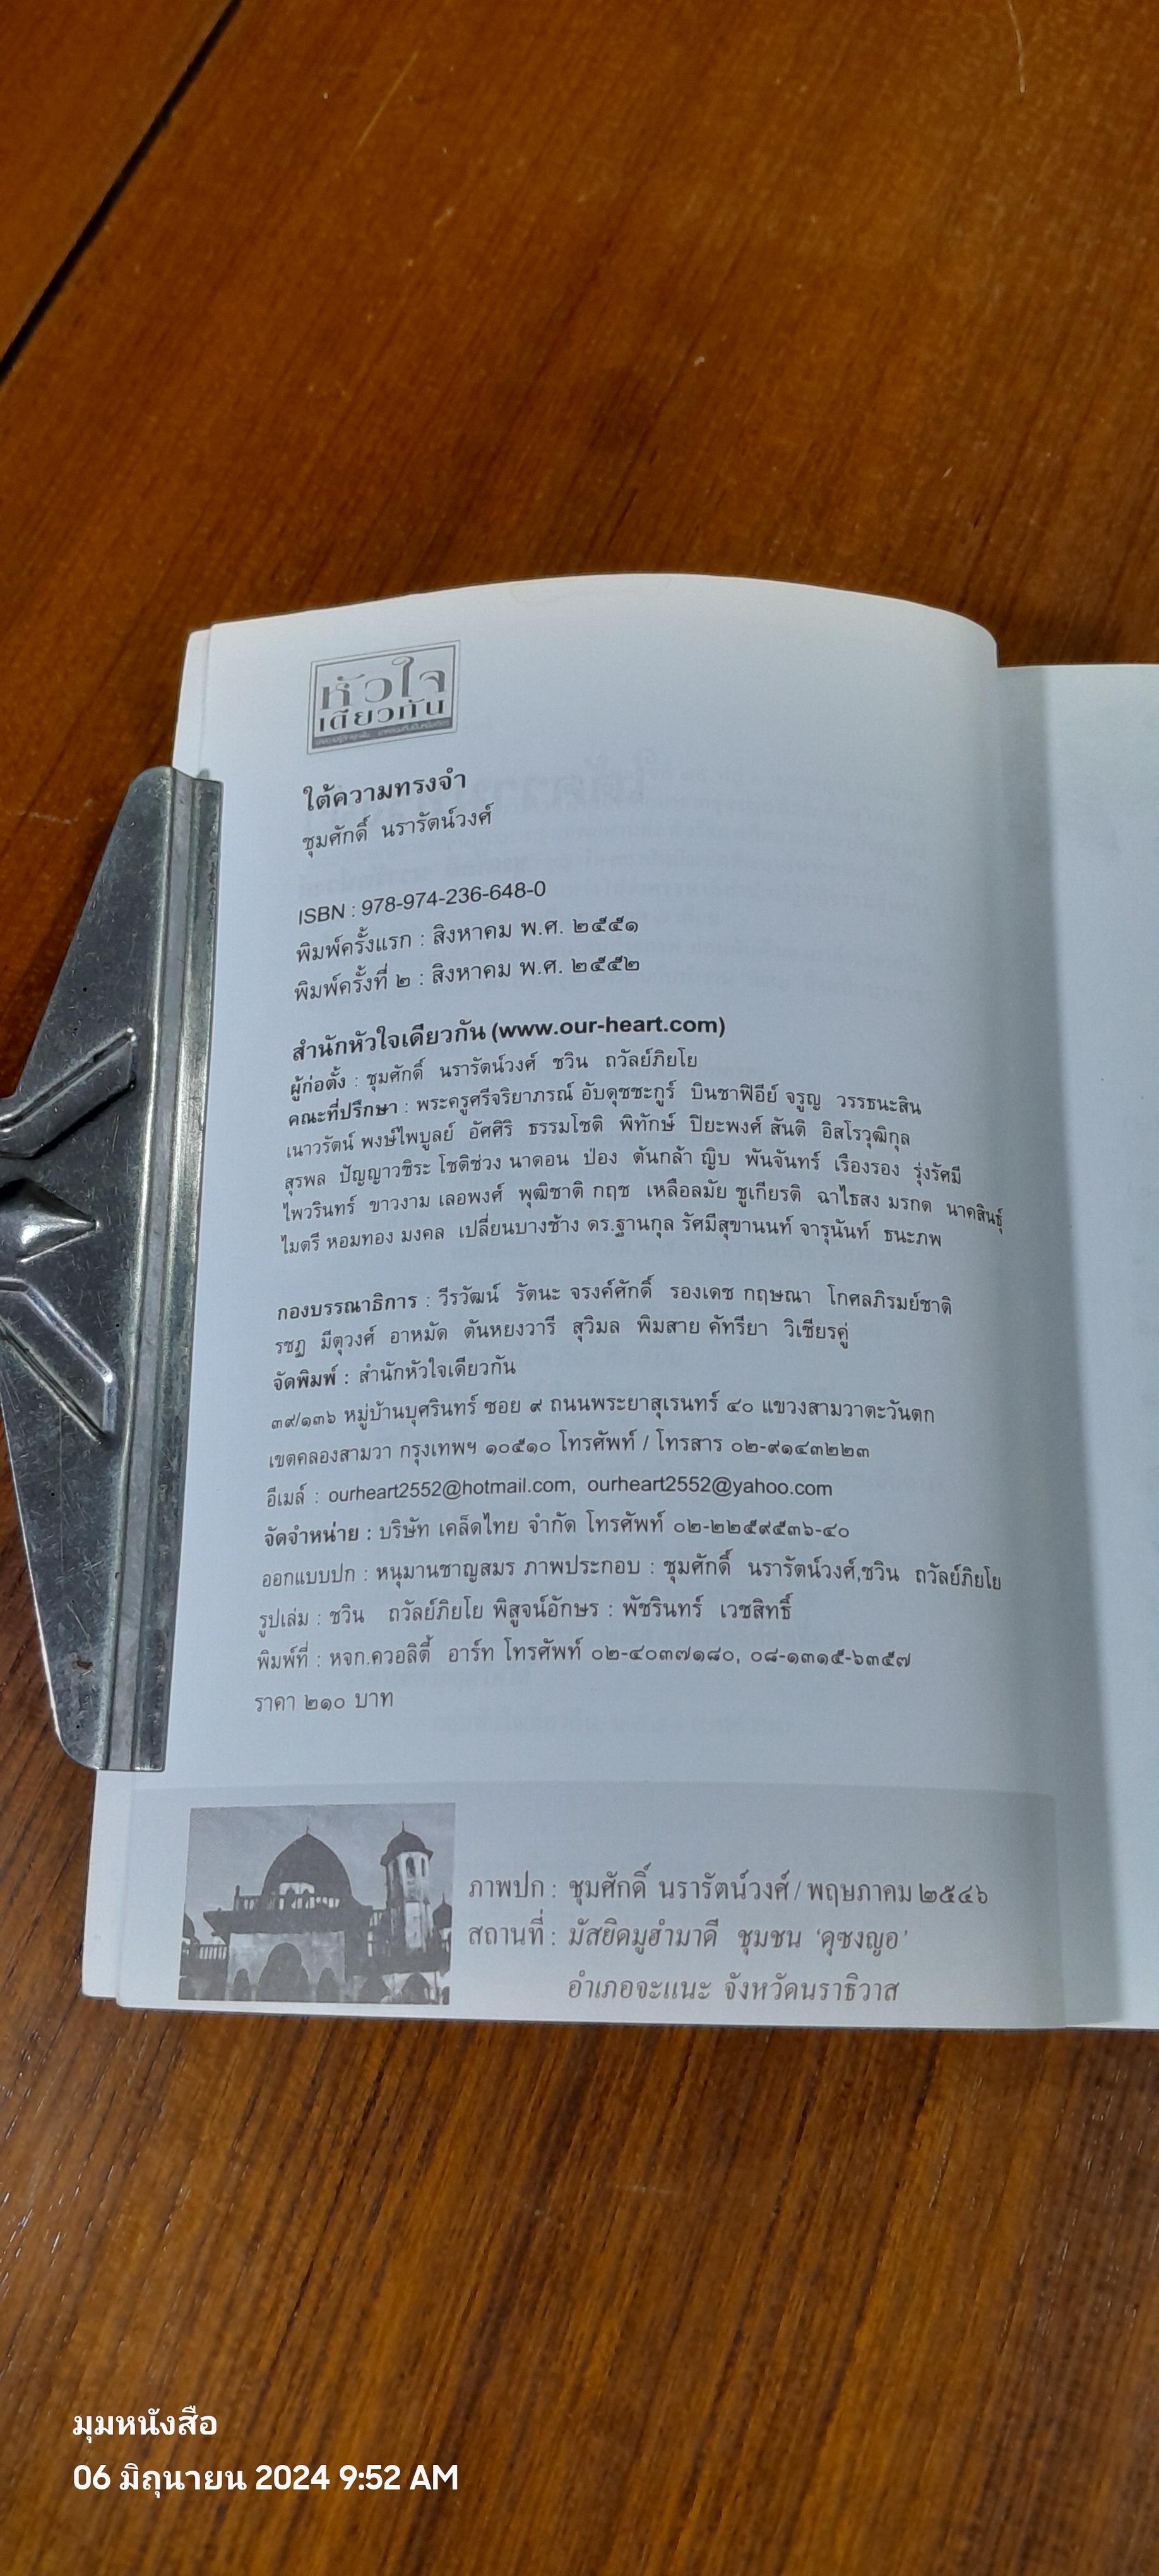 หัวใจ
เดียวกัน
ใต้ความทรงจำ
ชุมศักดิ์ นรารัตน์วงศ์
ISBN : 978-974-236-648-0
พิมพ์ครั้งแรก : สิงหาคม พ.ศ. ๒๕๕๑
พิมพ์ครั้งที่ ๒ : สิงหาคม พ.ศ. ๒๕๕๒
สำนักหัวใจเดียวกัน (www.our-heart.com)
ผู้ก่อตั้ง : ชุมศักดิ์ นรารัตน์วงศ์ ชวิน ถวัลย์ภิยโย
คณะที่ปรึกษา : พระครูศรีจริยาภรณ์ อับดุชชะกูร์ บินชาฟิอีย์ จรูญ วรรธนะสิน
เนาวรัตน์ พงษ์ไพบูลย์ อัศศิริ ธรรมโชติ พิทักษ์ ปิยะพงศ์ สันติ อิสโรวุฒิกุล
สุรพล ปัญญาวชิระ โชติช่วง นาดอน ป่อง ต้นกล้า ญิบ พันจันทร์ เรืองรอง รุ่งรัศมี
ไพวรินทร์ ขาวงาม เลอพงศ์ พุฒิชาติ กฤช เหลือลมัย ชูเกียรติ ฉาไธสง มรกต นาคสินธุ์
ไมตรี หอมทอง มงคล เปลี่ยนบางช้าง ดร.ฐานกุล รัศมีสุขานนท์ จารุนันท์ ธนะภพ
กองบรรณาธิการ : วีรวัฒน์ รัตนะ จรงค์ศักดิ์ รองเดช กฤษณา โกศลภิรมย์ชาติ
รชฎ มีตุวงศ์ อาหมัด ตันหยงวารี สุวิมล พิมสาย คัทรียา วิเชียรคู่
จัดพิมพ์ : สำนักหัวใจเดียวกัน
๓๙/๑๓๖ หมู่บ้านบุศรินทร์ ซอย ๙ ถนนพระยาสุเรนทร์ ๔๐ แขวงสามวาตะวันตก
เขตคลองสามวา กรุงเทพฯ ๑๐๕๑๐ โทรศัพท์ / โทรสาร ๐๒-๙๑๔๓๒๒๓
อีเมล์ : ourheart2552@hotmail.com, ourheart2552@yahoo.com
จัดจำหน่าย : บริษัท เคล็ดไทย จำกัด โทรศัพท์ ๐๒-๒๒๕๙๕๓๖-๔๐
ออกแบบปก : หนุมานชาญสมร ภาพประกอบ : ชุมศักดิ์ นรารัตน์วงศ์,ชวิน ถวัลย์ภิยโย
รูปเล่ม : ชวิน ถวัลย์ภิยโย พิสูจน์อักษร : พัชรินทร์ เวชสิทธิ์
พิมพ์ที่ : หจก.ควอลิตี้ อาร์ท โทรศัพท์ ๐๒-๔๐๓๗๑๘๐, ๐๘-๑๓๑๕-๖๓๕๗
ราคา ๒๑๐ บาท
ภาพปก : ชุมศักดิ์ นรารัตน์วงศ์ / พฤษภาคม ๒๕๔๖
สถานที่ : มัสยิดมูฮำมาดี ชุมชน ‘ดุซงญอ’
อำเภอจะแนะ จังหวัดนราธิวาส
มุมหนังสือ
06 มิถุนายน 2024 9:52 AM